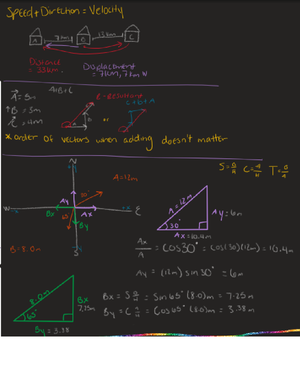 Speed + Direction = Velocity
7km 15km
A B C
Distance
= 33km
Displacement
= 7km, 7km W
A+B+C
A = 5m
B = 3m
C = 4m
R = Resultant
C+B+A
or
* order of vectors when adding doesn't matter
N
S = O/H C = A/H T = O/A
A = 12m
30°
Ay
A = 12m
Ay = 6m
W Bx Ax E
30°
65°
By
Ax = 10.4m
B = 8.0m
S
Ax/A = cos30° = cos(30)(12m) = 10.4m
Ay = (12m) sin30° = 6m
8.0m
Bx
7.25m
65°
By = 3.38
Bx = S O/H = Sin65° (8.0m) = 7.25m
By = C A/H = Cos65° (8.0m) = 3.38m